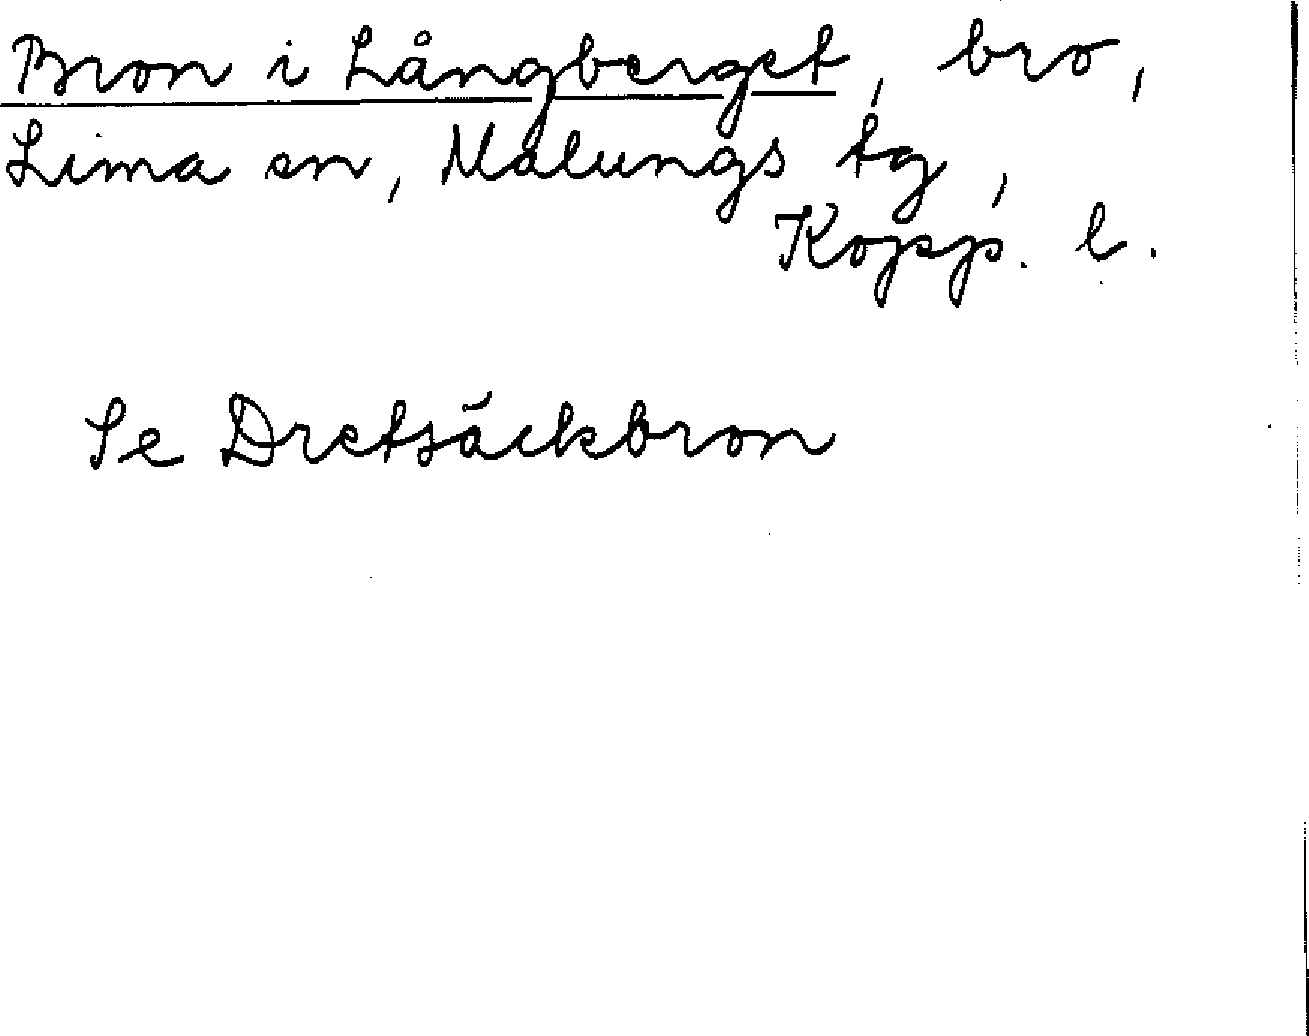 Bron i Långberget, bro,
Lima sn, Malungs tg,
Kopp. l.
Se Dretsäckbron